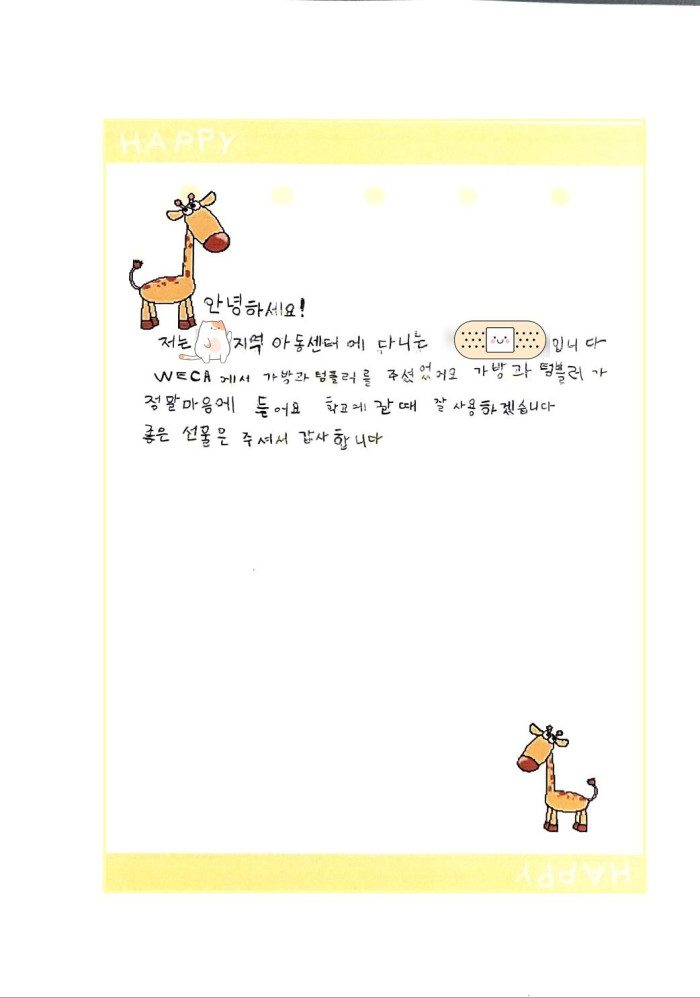 HAPPY
안녕하세요!
저는 지역 아동센터에 다니는 입니다
WECA에서 가방과 텀블러를 주셨었어요 가방과 텀블러가
정말마음에 들어요 학교에 갈때 잘 사용하겠습니다
좋은 선물은 주셔서 감사합니다
HAPPY